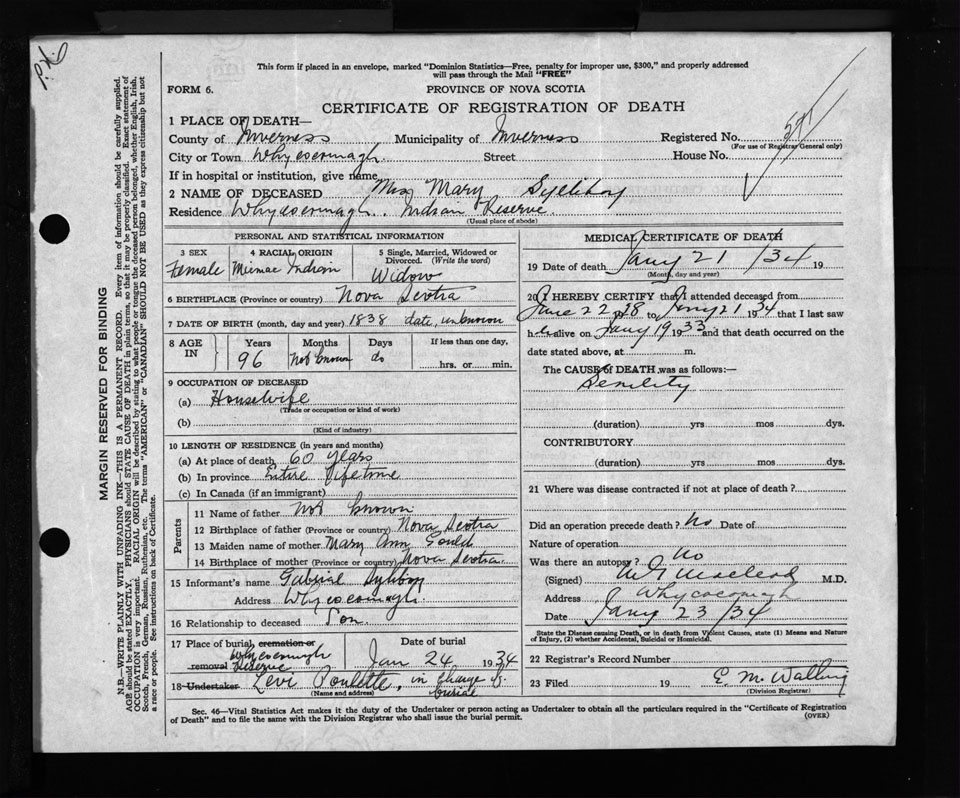 P.H.
This form if placed in an envelope, marked "Dominion Statistics—Free, penalty for improper use, $300," and properly addressed
will pass through the Mail "FREE"
FORM 6.
PROVINCE OF NOVA SCOTIA
CERTIFICATE OF REGISTRATION OF DEATH
1 PLACE OF DEATH—
County of Inverness Municipality of Inverness Registered No.
(For use of Registrar General only)
City or Town Whycocomagh Street House No.
If in hospital or institution, give name
2 NAME OF DECEASED Mrs Mary Sylliboy
Residence Whycocomagh. Indian Reserve.
(Usual place of abode)
PERSONAL AND STATISTICAL INFORMATION
3 SEX 4 RACIAL ORIGIN 5 Single, Married, Widowed or
Divorced. (Write the word)
Female Micmac Indian Widow
6 BIRTHPLACE (Province or country) Nova Scotia
7 DATE OF BIRTH (month, day and year) 1838 date, unknown
8 AGE IN Years Months Days If less than one day,
96 Not known do hrs. or min.
9 OCCUPATION OF DECEASED
(a) Housewife
(Trade or occupation or kind of work)
(b)
(Kind of industry)
10 LENGTH OF RESIDENCE (in years and months)
(a) At place of death 60 years
(b) In province Entire lifetime
(c) In Canada (if an immigrant)
Parents
11 Name of father Not known
12 Birthplace of father (Province or country) Nova Scotia
13 Maiden name of mother Mary Ann Gould
14 Birthplace of mother (Province or country) Nova Scotia
15 Informant's name Gabrial Syliboy
Address Whycocomagh.
16 Relationship to deceased Son.
17 Place of burial cremation or
removal Whycocomagh Reserve
Date of burial
Jan 24 1934
18 Undertaker Levi Poulette, in charge of burial
(Name and address)
MEDICAL CERTIFICATE OF DEATH
19 Date of death Jany 21 /34 19
(Month, day and year)
20 I HEREBY CERTIFY that I attended deceased from
June 22 1928 to Jany 21 1934 that I last saw
her alive on Jany 19 1933 and that death occurred on
date stated above, at m.
The CAUSE of DEATH was as follows:—
Senility
(duration) yrs mos dys.
CONTRIBUTORY
(duration) yrs. mos dys.
21 Where was disease contracted if not at place of death?
Did an operation precede death? No Date of
Nature of operation
Was there an autopsy? No
(Signed) Macleod M.D.
Address Whycocomagh
Date Jany 23 /34
State the Disease causing Death, or in death from Violent Causes, state (1) Means and Nature
of Injury, (2) whether Accidental, Suicidal or Homicidal.
22 Registrar's Record Number
23 Filed 19 E. M. Walling
(Division Registrar)
Sec. 46—Vital Statistics Act makes it the duty of the Undertaker or person acting as Undertaker to obtain all the particulars required in the "Certificate of Registration
of Death" and to file the same with the Division Registrar who shall issue the burial permit.
(OVER)
MARGIN RESERVED FOR BINDING
N.B.—WRITE PLAINLY WITH UNFADING INK—THIS IS A PERMANENT RECORD. Every item of information should be carefully supplied.
AGE should be stated EXACTLY. PHYSICIANS should STATE CAUSE OF DEATH in plain terms, so that it may be properly classified. Exact statement of
OCCUPATION is very important. RACIAL ORIGIN will be described by stating to what people or tongue the deceased person belonged, whether English, Irish,
Scotch, French, German, Russian, Ruthenian, etc. The terms "AMERICAN" or "CANADIAN" SHOULD NOT BE USED as they express citizenship but not
a race or people. See instructions on back of Certificate.